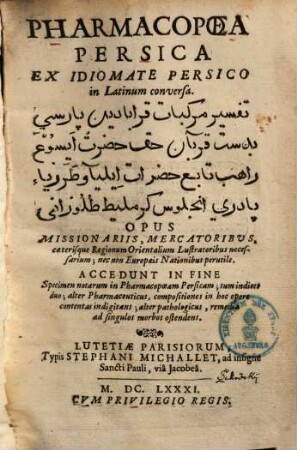 PHARMACOPŒA
PERSICA
EX IDIOMATE PERSICO
in Latinum conversa.
تفسير مركبات قرابادين پارسي
بدست قربان حق حضرت ايسوع
راهب تابع حضرات ايليا و طرزياء
پادري انجلوس كرمليط طلوزاني
OPUS
MISSIONARIIS, MERCATORIBUS,
cæterisque Regionum Orientalium Lustratoribus neces-
sarium; nec non Europæis Nationibus perutile.
ACCEDUNT IN FINE
Specimen notarum in Pharmacopœam Persicam; tum indices
duo; alter Pharmaceuticus, compositiones in hoc opere
contentas indigitans; alter pathologicus, remedia
ad singulos morbos ostendens.
LUTETIÆ PARISIORUM,
Typis STEPHANI MICHALLET, ad insigne
Sancti Pauli, viâ Jacobeâ.
M. DC. LXXXI.
CVM PRIVILEGIO REGIS.